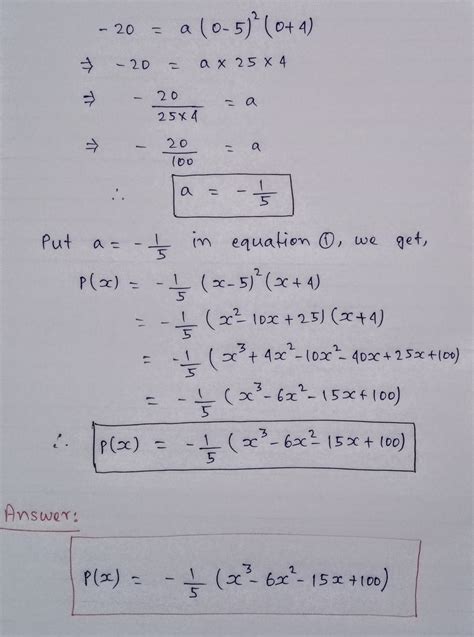 -20 = a (0-5)² (0+4)
⇒ -20 = a × 25 × 4
⇒ - 20/25×4 = a
⇒ - 20/100 = a
∴ a = - 1/5
Put a = - 1/5 in equation ①, we get,
P(x) = - 1/5 (x-5)² (x+4)
= - 1/5 (x² - 10x + 25) (x+4)
= - 1/5 (x³ + 4x² - 10x² - 40x + 25x + 100)
= - 1/5 (x³ - 6x² - 15x + 100)
∴ P(x) = - 1/5 (x³ - 6x² - 15x + 100)
Answer:
P(x) = - 1/5 (x³ - 6x² - 15x + 100)